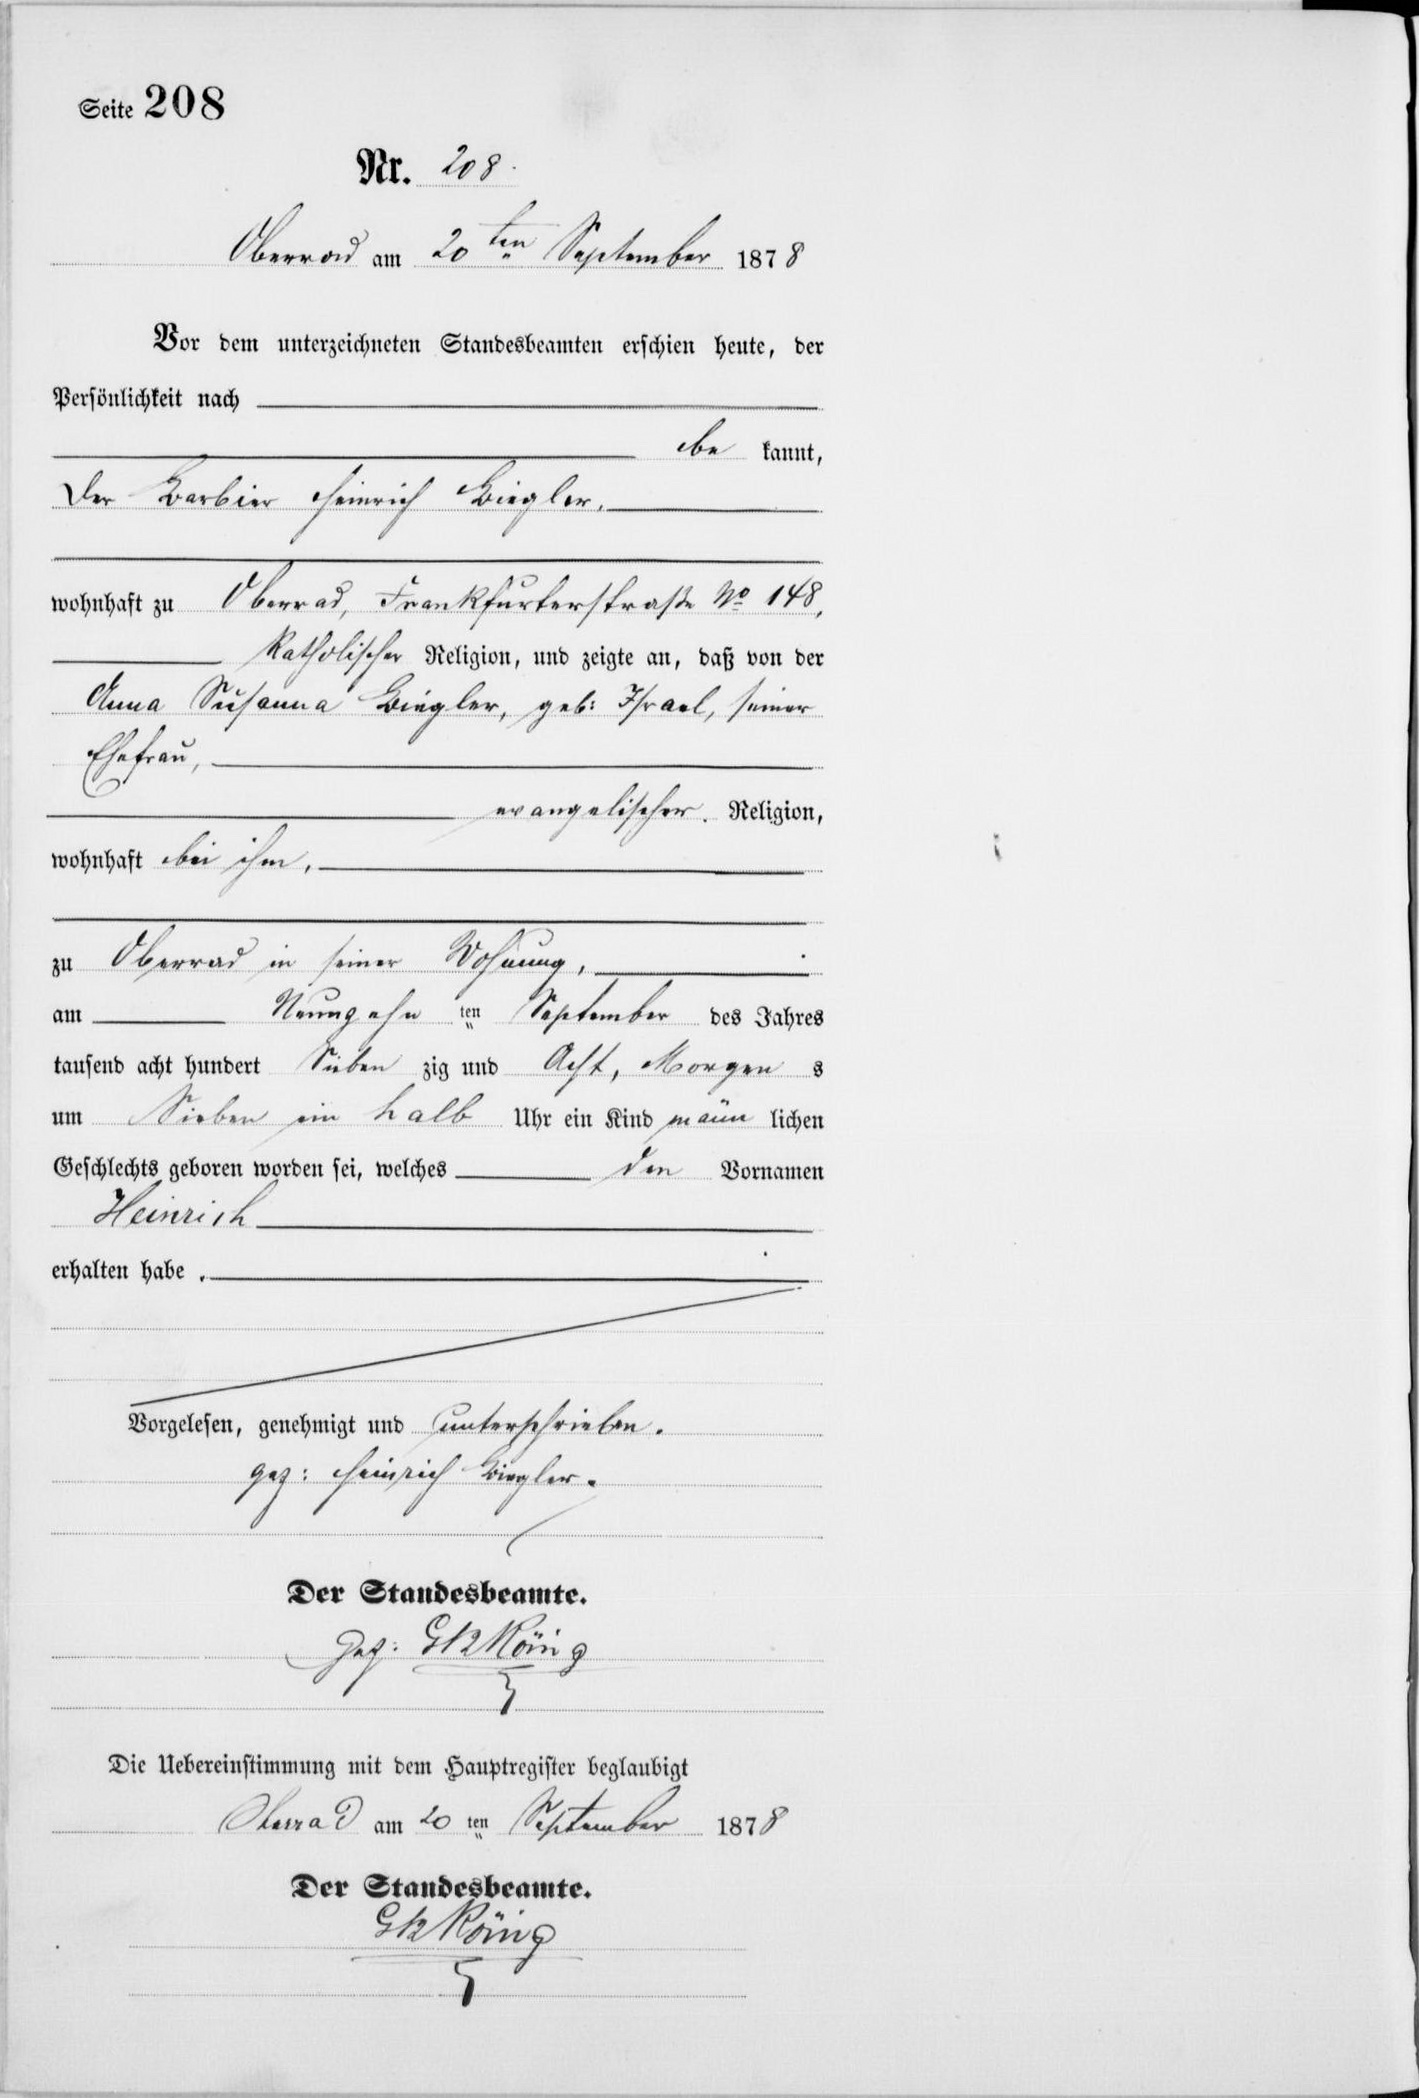 Seite 208
Nr. 208.
Oberrad am 20ten September 1878
Vor dem unterzeichneten Standesbeamten erschien heute, der
Persönlichkeit nach
be kannt,
der Barbier Heinrich Biegler,
wohnhaft zu Oberrad, Frankfurterstraße No 148,
katholischer Religion, und zeigte an, daß von der
Anna Susanna Biegler, geb: Israel, seiner
Ehefrau,
evangelischer Religion,
wohnhaft bei ihm,
zu Oberrad in seiner Wohnung,
am Neunzehn ten September des Jahres
tausend acht hundert Sieben zig und Acht, Morgen s
um Sieben ein halb Uhr ein Kind männ lichen
Geschlechts geboren worden sei, welches den Vornamen
Heinrich
erhalten habe.
Vorgelesen, genehmigt und unterschrieben.
gez: Heinrich Biegler.
Der Standesbeamte.
gez: König
Die Uebereinstimmung mit dem Hauptregister beglaubigt
Oberrad am 20 ten September 1878
Der Standesbeamte.
König